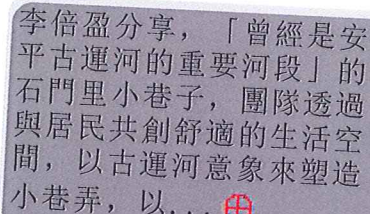 李倍盈分享，「曾經是安
平古運河的重要河段」的
石門里小巷子，團隊透過
與居民共創舒適的生活空
間，以古運河意象來塑造
小巷弄，以...